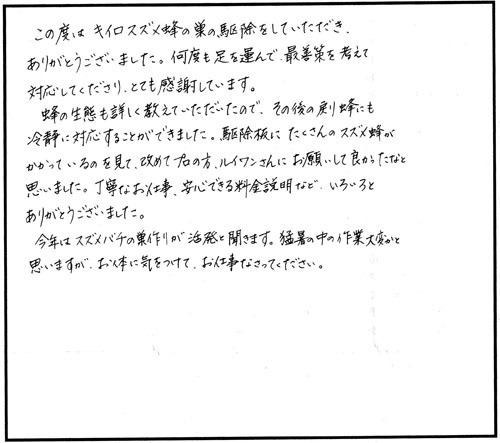 この度は キイロスズメ蜂の巣の駆除をしていただき、
ありがとうございました。何度も足を運んで、最善策を考えて
対応してくださり、とても感謝しています。
蜂の生態も詳しく教えていただいたので、その後の戻り蜂にも
冷静に対応することができました。駆除板に たくさんのスズメ蜂が
かかっているのを見て、改めてプロの方、ルイワンさんにお願いして良かったなと
思いました。丁寧なお仕事、安心できる料金説明など、いろいろと
ありがとうございました。
今年はスズメバチの巣作りが 活発と聞きます。猛暑の中の作業大変かと
思いますが、お体に気をつけて、お仕事なさってください。